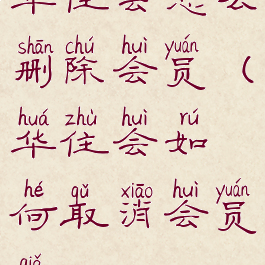 shān chú huì yuán
删除会员（
huá zhù huì rú
华住会如
hé qǔ xiāo huì yuán
何取消会员